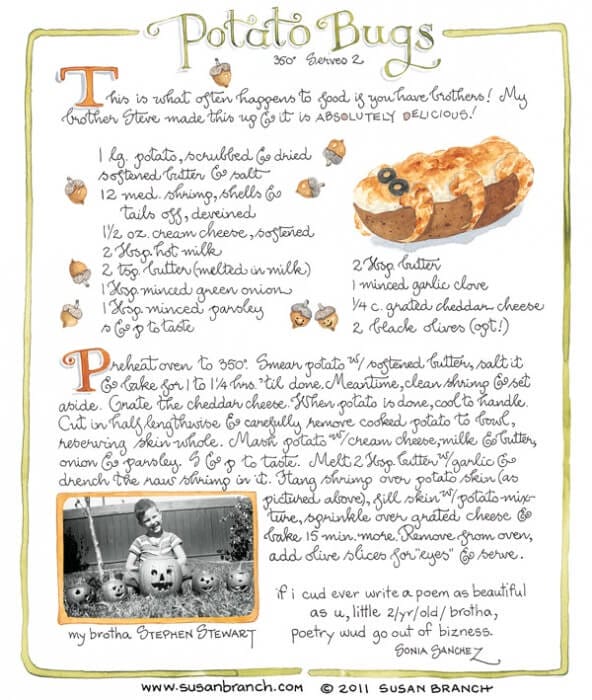 Potato Bugs
350° Serves 2
This is what often happens to food if you have brothers! My
brother Steve made this up & it is ABSOLUTELY DELICIOUS!
1 lg. potato, scrubbed & dried
softened butter & salt
12 med. shrimp, shells &
tails off, deveined
1½ oz. cream cheese, softened
2 Tbsp. hot milk
2 tsp. butter (melted in milk)
1 Tbsp. minced green onion
1 Tbsp. minced parsley
s & p to taste
2 Tbsp. butter
1 minced garlic clove
1/4 c. grated cheddar cheese
2 black olives (opt!)
Preheat oven to 350°. Smear potato w/ softened butter, salt it
& bake for 1 to 1¼ hrs. 'til done. Meantime, clean shrimp & set
aside. Grate the cheddar cheese. When potato is done, cool to handle.
Cut in half lengthwise & carefully remove cooked potato to bowl,
reserving skin whole. Mash potato w/ cream cheese, milk & butter,
onion & parsley. S & p to taste. Melt 2 Tbsp. butter w/ garlic &
drench the raw shrimp in it. Hang shrimp over potato skin (as
pictured above), fill skin w/ potato mix-
ture, sprinkle over grated cheese &
bake 15 min. more. Remove from oven,
add olive slices for "eyes" & serve.
my brotha STEPHEN STEWART
if i cud ever write a poem as beautiful
as u, little 2/yr/old/brotha,
poetry wud go out of bizness.
SONIA SANCHEZ
www.susanbranch.com © 2011 SUSAN BRANCH